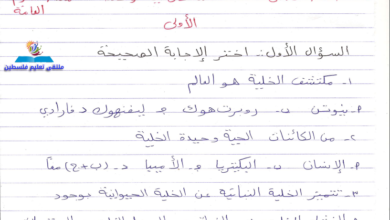 العامة
الأولى
السؤال الأول:. اختر الإجابة الصحيحة
ملتقى تعليم فلسطين
١- مكتشف الخلية هو العالم
P. نيوتن ب. روبرت هوك ج. ليفنهوك د. فارادي
٢- من الكائنات الحية وحيدة الخلية
P. الإنسان ب. البكتيريا ج. الأميبا د. (ب+ج) معًا
٣- تتميز الخلية النباتية عن الخلية الحيوانية بوجود